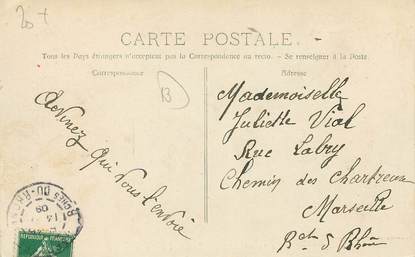 20 +
CARTE POSTALE.
Tous les Pays étrangers n'acceptent pas la Correspondance au recto. — Se renseigner à la Poste.
Correspondance
Adresse
B
Devinez qui vous l'envoie
Mademoiselle
Juliette Vial
Rue Labry
Chemin des Chartreux
Marseille
B
du Rhône
BCHES-DU-RH
14
09
REPUBLIQUE FRANÇAISE